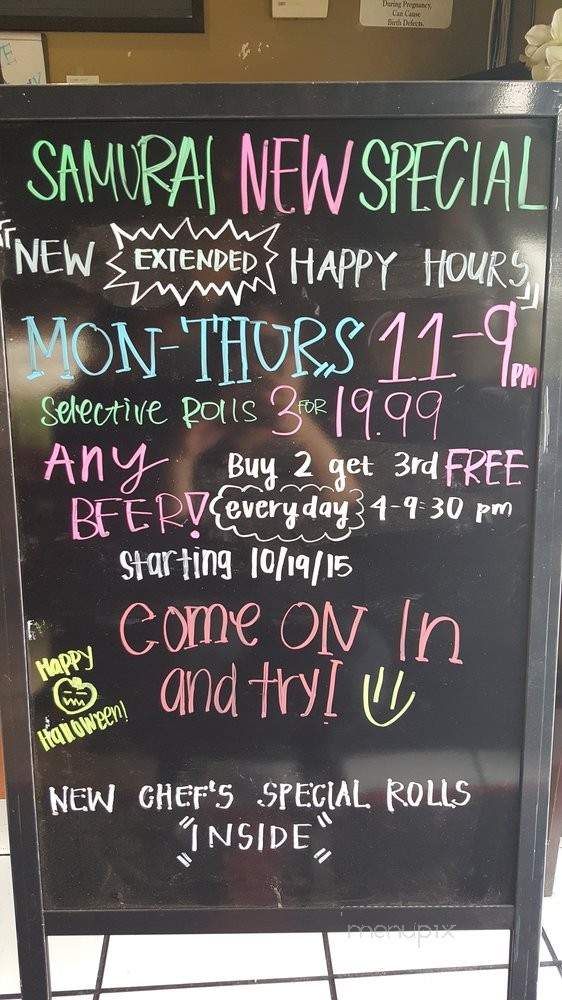 During Pregnancy,
Can Cause
Birth Defects.
SAMURAI NEW SPECIAL
「NEW EXTENDED HAPPY HOURS」
MON-THURS 11-9pm
Selective Rolls 3 FOR 19.99
Any Buy 2 get 3rd FREE
BEER! everyday 4-9:30 pm
Starting 10/19/15
Come ON In
and try!
Happy
Halloween!
NEW CHEF'S SPECIAL ROLLS
"INSIDE"
menupix